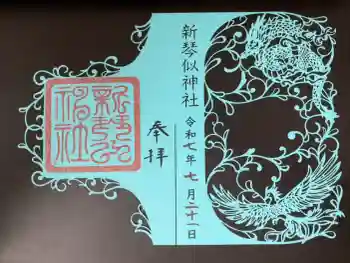 新琴似神社
令和七年七月二十一日
奉拝
新琴似神社